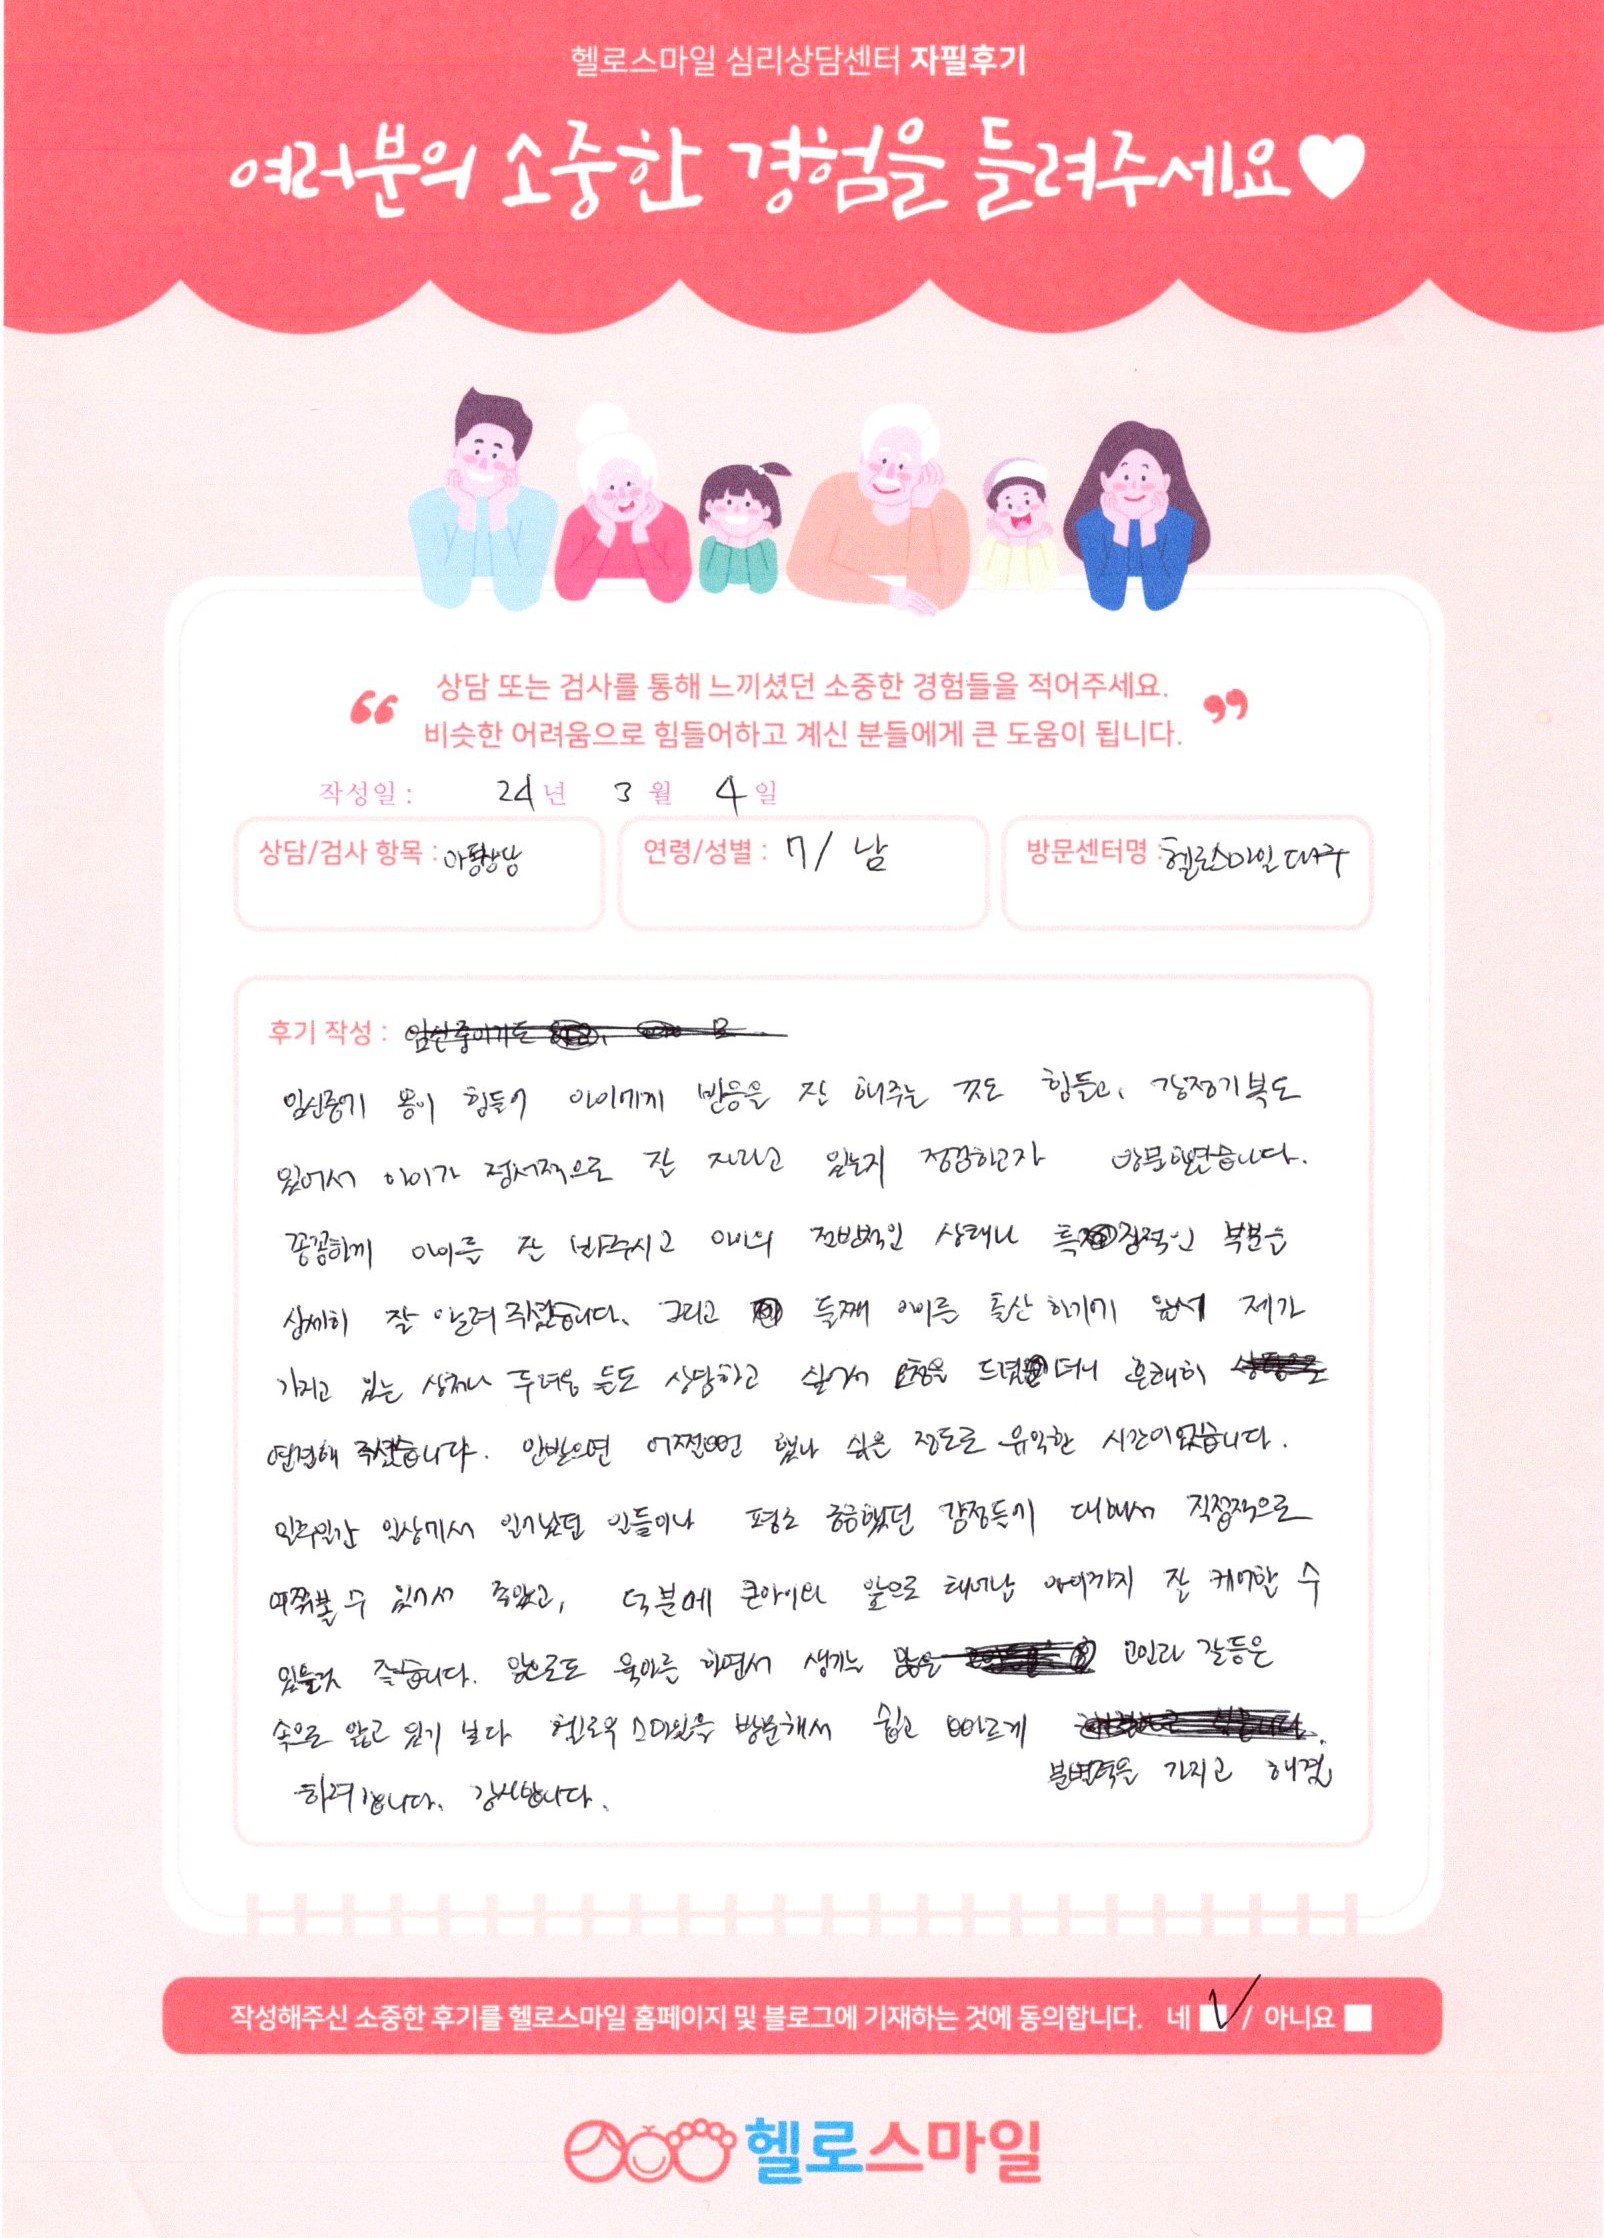 헬로스마일 심리상담센터 자필후기
여러분의 소중한 경험을 들려주세요
상담 또는 검사를 통해 느끼셨던 소중한 경험들을 적어주세요.
비슷한 어려움으로 힘들어하고 계신 분들에게 큰 도움이 됩니다.
작성일 : 24년 3월 4일
상담/검사 항목 : 아동상담
연령/성별 : 7/ 남
방문센터명 : 헬로스마일
후기 작성 :
임신중기 몸이 힘들어 아이에게 반응을 잘 해주는 것도 힘들고, 감정기복도
있어서 아이가 정서적으로 잘 자라고 있는지 점검하고자 방문했었습니다.
꼼꼼하게 아이를 잘 봐주시고 아이의 전반적인 상태나 특징적인 부분을
상세히 잘 알려주셨습니다. 그리고 둘째 아이를 출산하기에 앞서 제가
가지고 있는 상처나 두려움 등도 상담하고 싶어서 요청을 드렸더니 흔쾌히
연결해 주셨습니다. 안받으면 어쩔뻔 했나 싶은 정도로 유익한 시간이었습니다.
일주일간 일상에서 일어났던 일들이나 평소 궁금했던 감정들에 대해서 직접적으로
여쭤볼 수 있어서 좋았고, 덕분에 큰아이와 앞으로 태어날 아이까지 잘 케어할 수
있을것 같습니다. 앞으로도 육아를 하면서 생기는 많은 고민과 갈등은
속으로 앓고 있기 보다 헬로우 스마일을 방문해서 쉽고 빠르게
분별력을 가지고 해결
하려합니다. 감사합니다.
작성해주신 소중한 후기를 헬로스마일 홈페이지 및 블로그에 기재하는 것에 동의합니다. 네 / 아니요
헬로스마일